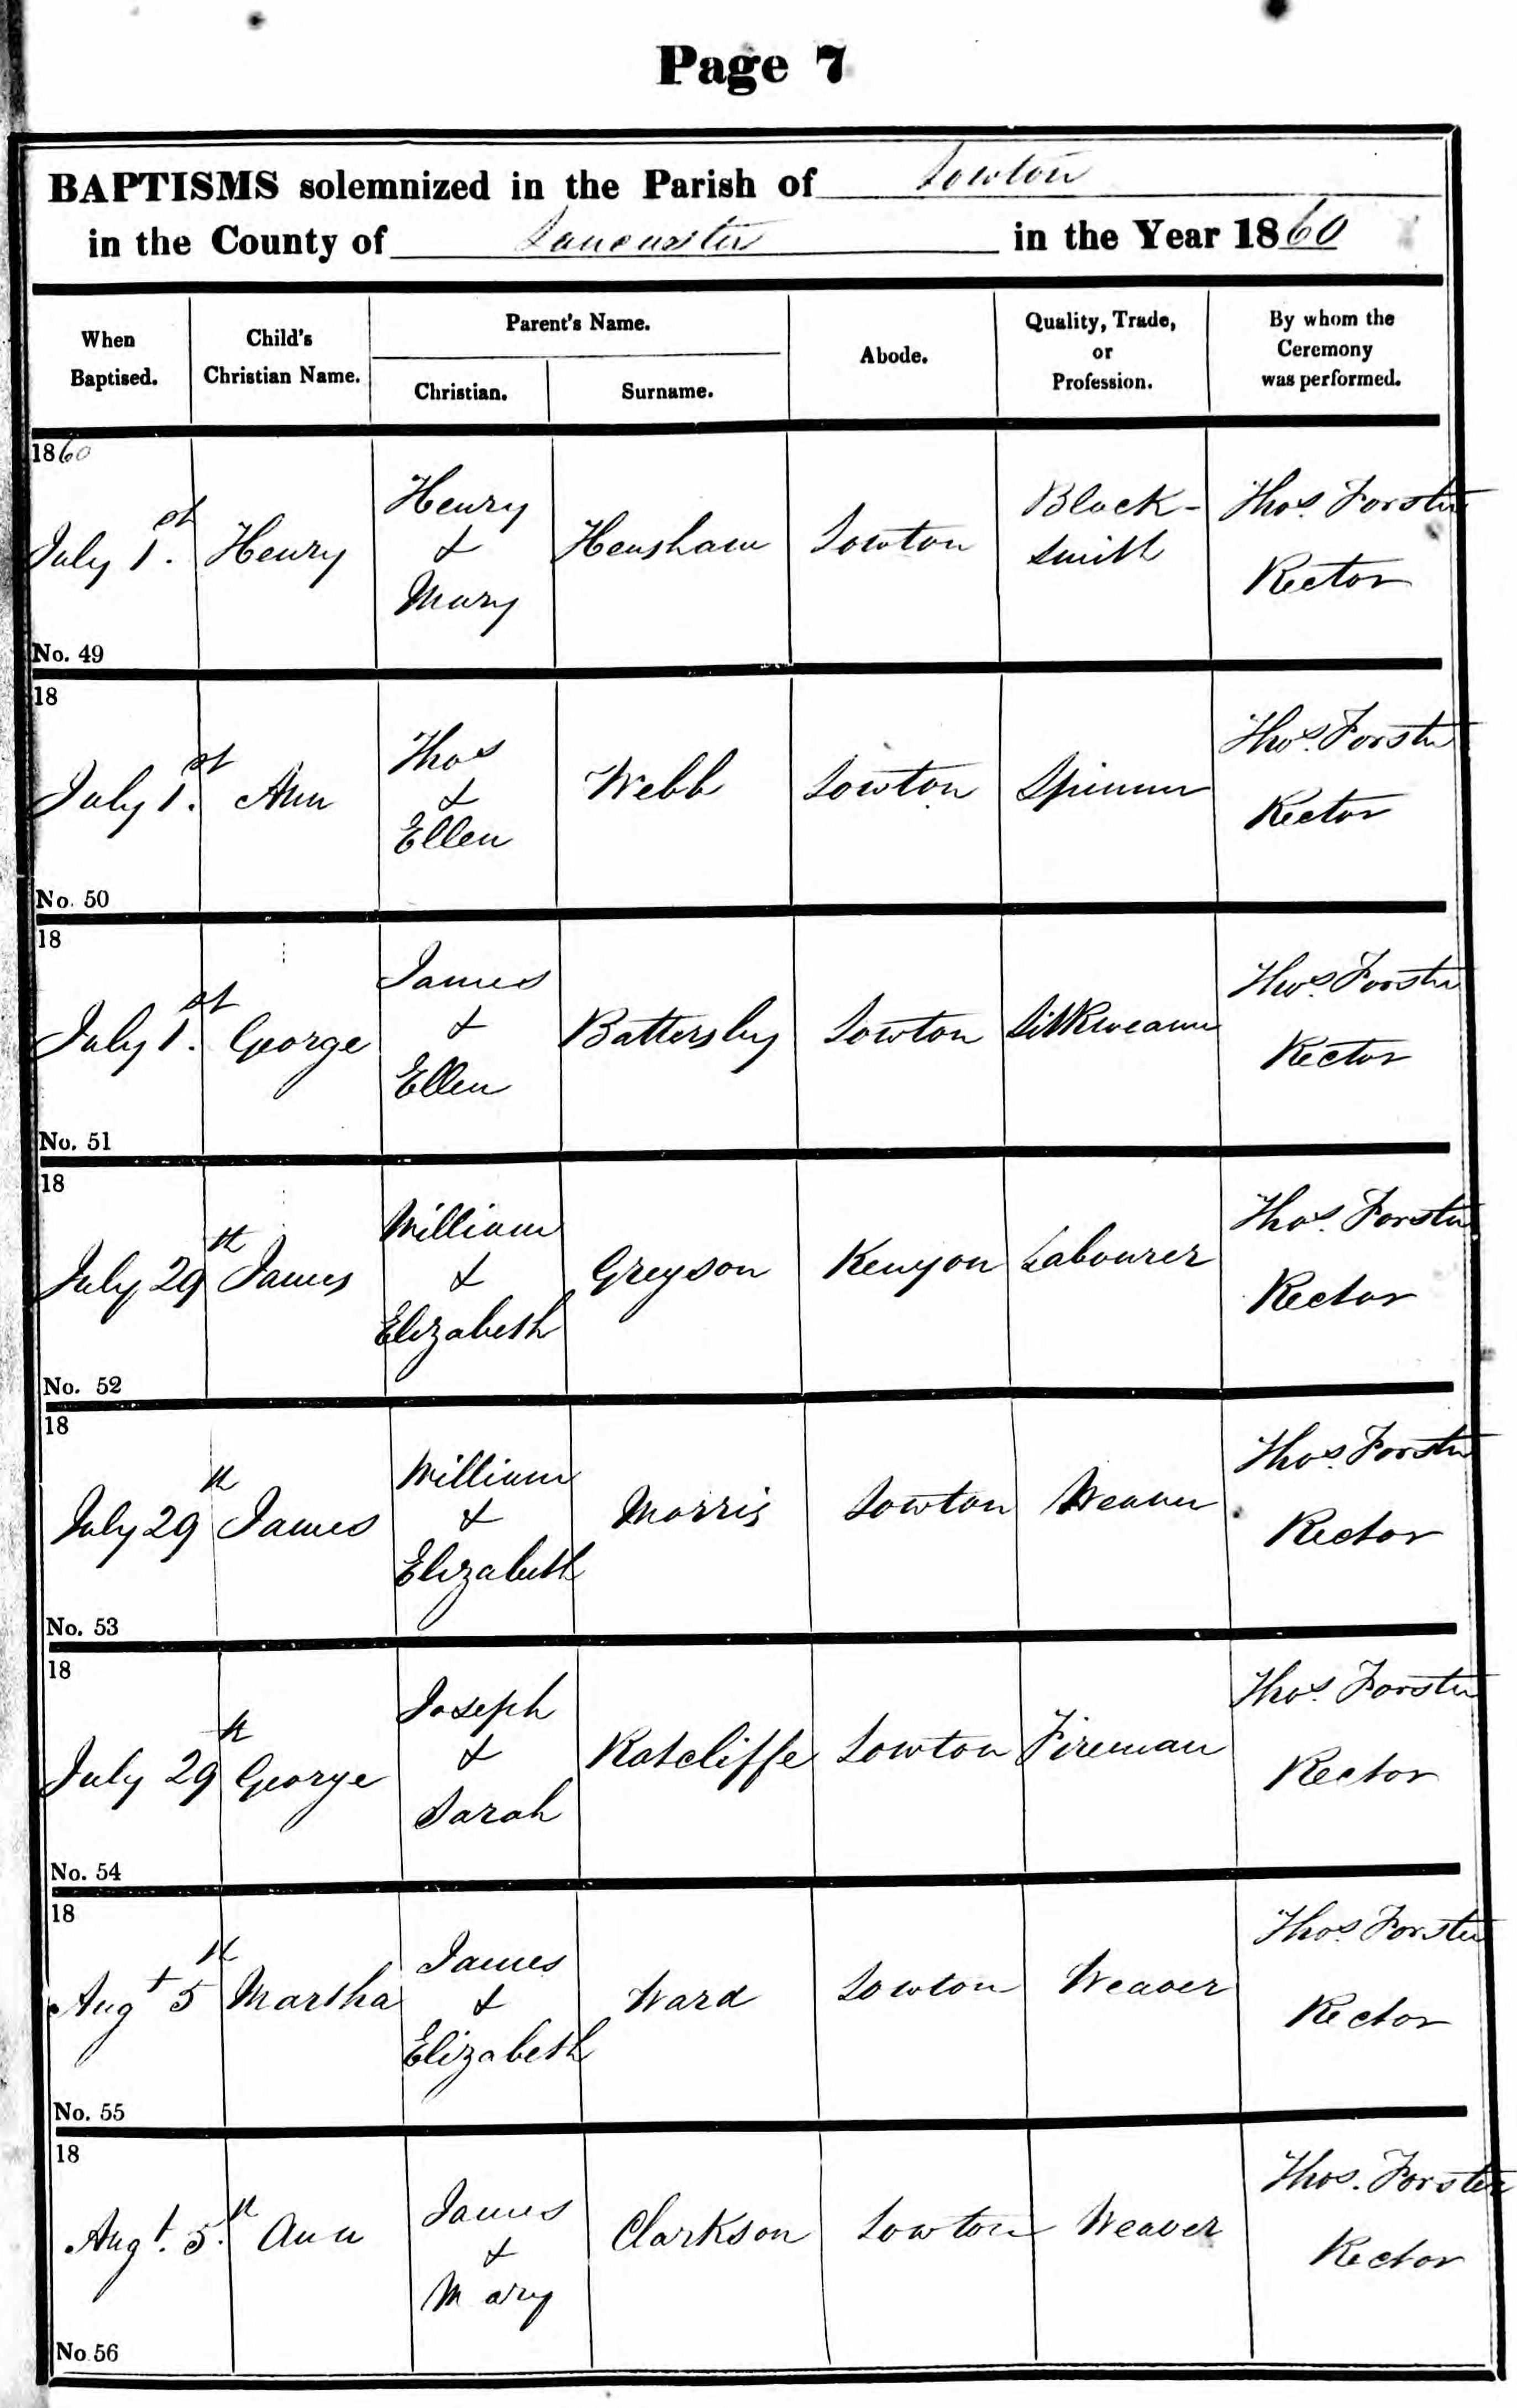 Page 7
BAPTISMS solemnized in the Parish of Lowton
in the County of Lancaster in the Year 1860
When Baptised. Child's Christian Name. Parent's Name. Christian. Surname. Abode. Quality, Trade, or Profession. By whom the Ceremony was performed.
1860
July 1st. Henry Henry & Mary Henshaw Lowton Black-smith Thos. Forster Rector
No. 49
18
July 1st. Ann Thos & Ellen Webb Lowton Spinner Thos. Forster Rector
No. 50
18
July 1st. George James & Ellen Battersby Lowton Silkweaver Thos. Forster Rector
No. 51
18
July 29th James William & Elizabeth Greyson Kenyon Labourer Thos. Forster Rector
No. 52
18
July 29th James William & Elizabeth Morris Lowton Weaver Thos. Forster Rector
No. 53
18
July 29th George Joseph & Sarah Ratcliffe Lowton Fireman Thos. Forster Rector
No. 54
18
Augt 5th Martha James & Elizabeth Ward Lowton Weaver Thos. Forster Rector
No. 55
18
Augt. 5th. Ann James & Mary Clarkson Lowton Weaver Thos. Forster Rector
No. 56